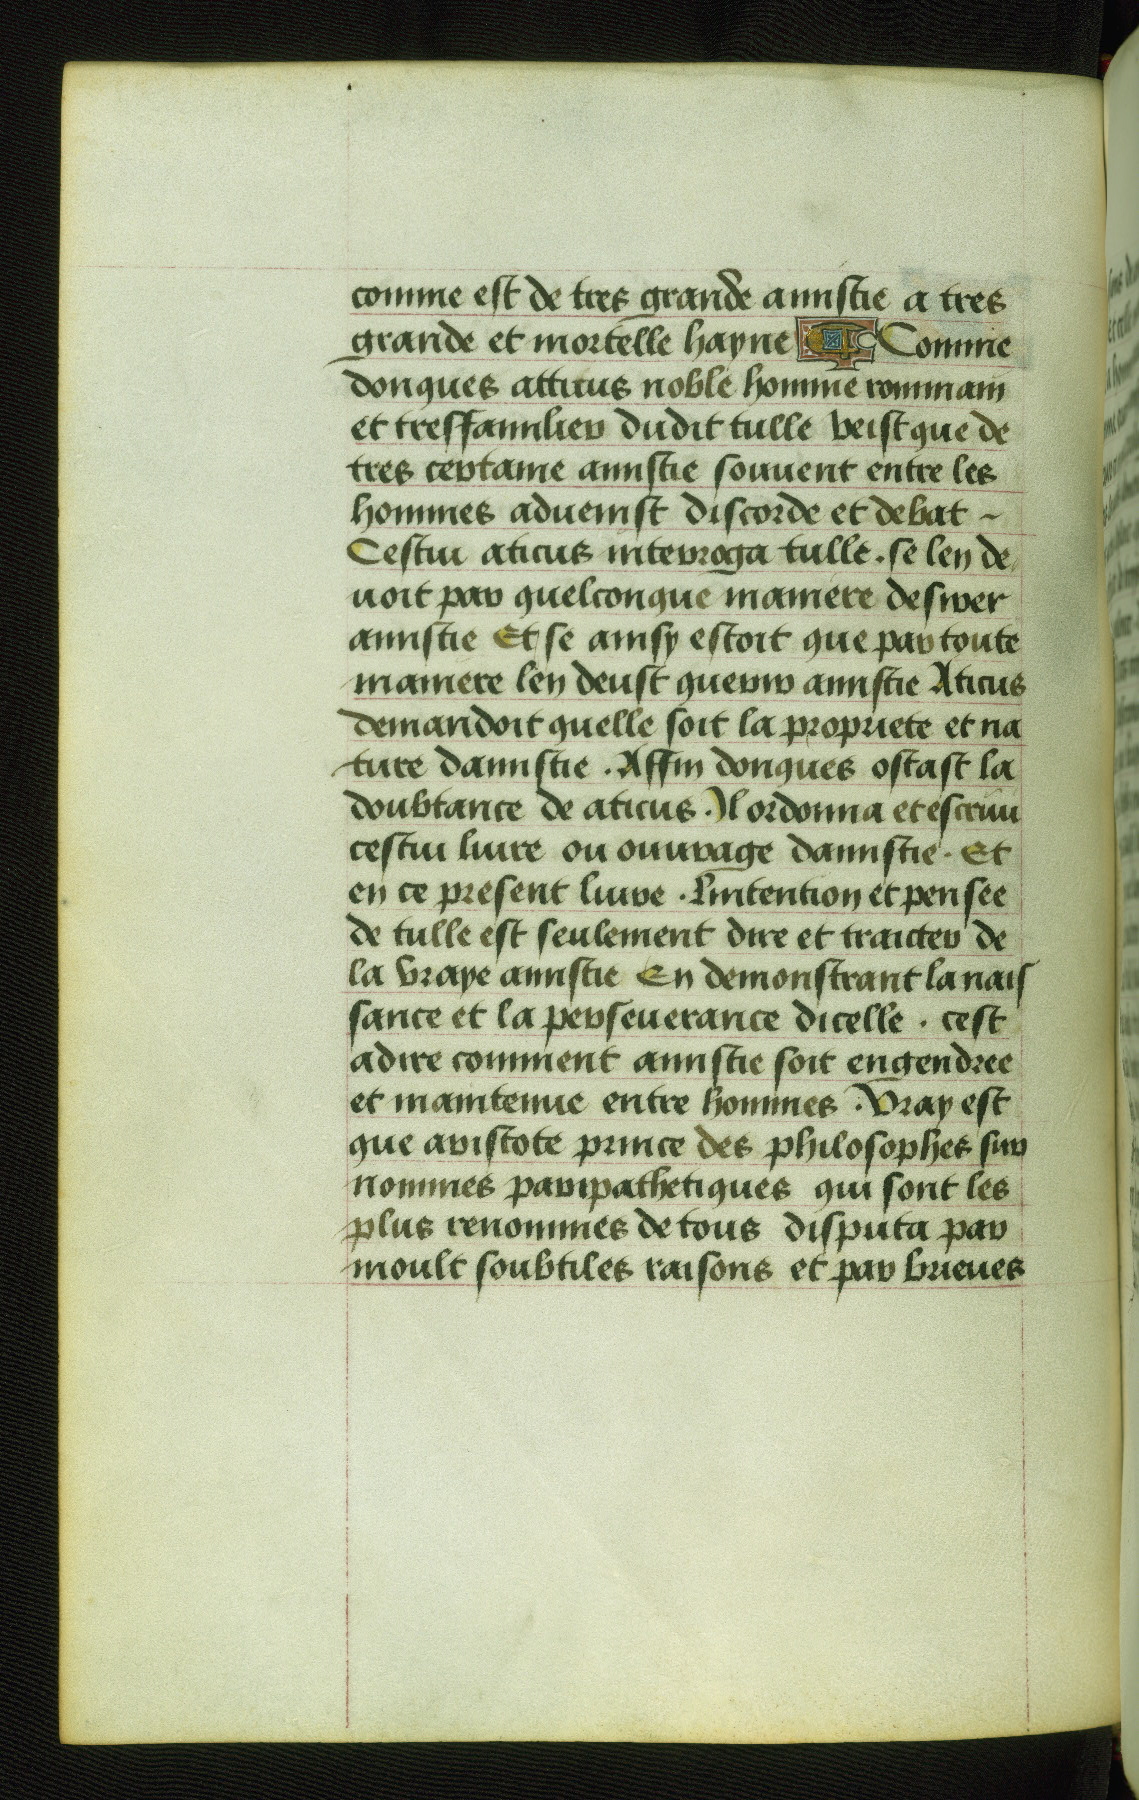 comme est de tres grande amistie a tres
grande et mortelle hayne Comme
donques atticus noble homme rommain
et tresfamilier dudit tulle veist que de
tres certaine amistie souuent entre les
hommes aduenist discorde et debat ~
Cestui aticus interroga tulle . se len de
uoit par quelconque maniere desirer
amistie Et se ainsy estoit que par toute
maniere len deust querir amistie Aticus
demandoit quelle soit la propriete et na
ture damistie . Affin donques ostast la
doubtance de aticus . Il ordonna et escriui
cestui liure ou ouurage damistie . Et
en ce present liure . Lintention et pensee
de tulle est seulement dire et traicter de
la vraye amistie En demonstrant la nais
sance et la perseuerance dicelle . cest
adire comment amistie soit engendree
et maintenue entre hommes . Vray est
que aristote prince des philosophes sur
nommes paripathetiques qui sont les
plus renommes de tous disputa par
moult soubtiles raisons et par brieues